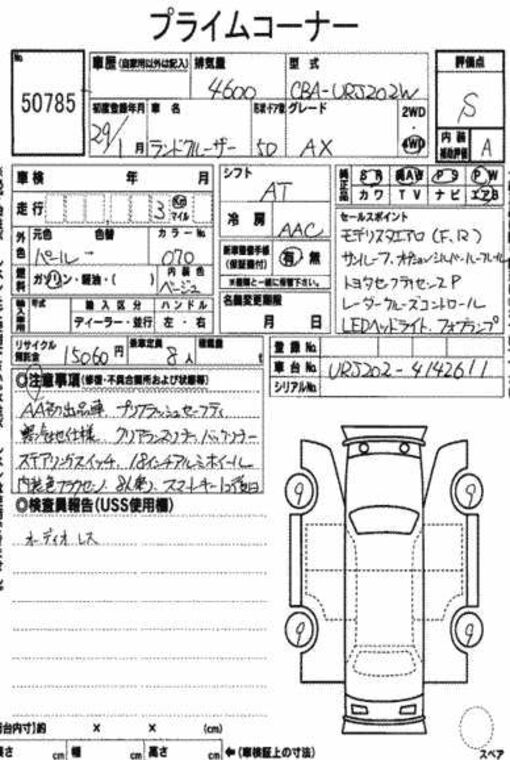 プライムコーナー
No. 50785
車歴(自家用以外は記入) 排気量 4600 型式 CBA-URJ202W
評価点 S
初度登録年月 29/1月 車名 ランドクルーザー 形状・ドア数 5D グレード AX 2WD 4WD
内装補助評価 A
車検 年 月
シフト AT
純正品 SR 純AW PS PW
カワ TV ナビ エアB
走行 3 Km マイル
冷房 AAC
セールスポイント
モデリスタエアロ(F,R)
サンルーフ、オプションシルバールーフレール
トヨタセーフティセンスP
レーダークルーズコントロール
LEDヘッドライト、フォグランプ
外色 元色 色替 カラーNo.
パール 070
新車整備手帳(保証書付) 有・無
※書類と一緒に保管下さい。
燃料 ガソリン・軽油・( ) 内装色 ベージュ
名義変更期限 月 日
輸入車用 年式 輸入区分 ハンドル
ディーラー・並行 左・右
リサイクル預託金 15060円 乗車定員 8人 積載量 t
登録No.
車台No. URJ202-4142611
シリアルNo.
◎注意事項(修復・不具合箇所および状態等)
AA初出品車 プリクラッシュセーフティ
寒冷地仕様 クリアランスソナー、バックソナー
ステアリングスイッチ、18インチアルミホイール
内装色フラクセン 8人乗り スマートキー1コ後日
◎検査員報告(USS使用欄)
オーディオレス
9 9
9 9
荷台内寸)約 × × (cm)
長さ cm 幅 cm 高さ cm ←(車検証上の寸法)
スペア